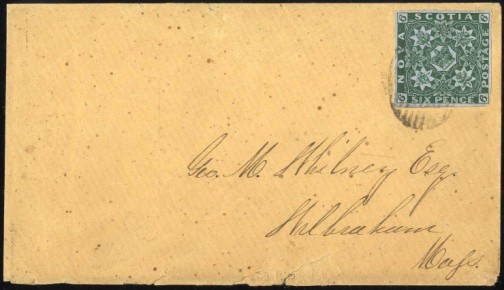 NOVA SCOTIA POSTAGE
SIX PENCE
6 6 6 6
Geo. M. Whitney Esq.
Wilbraham
Mass.